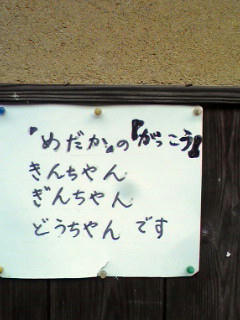 『めだか』の『がっこう』
きんちゃん
ぎんちゃん
どうちゃん です